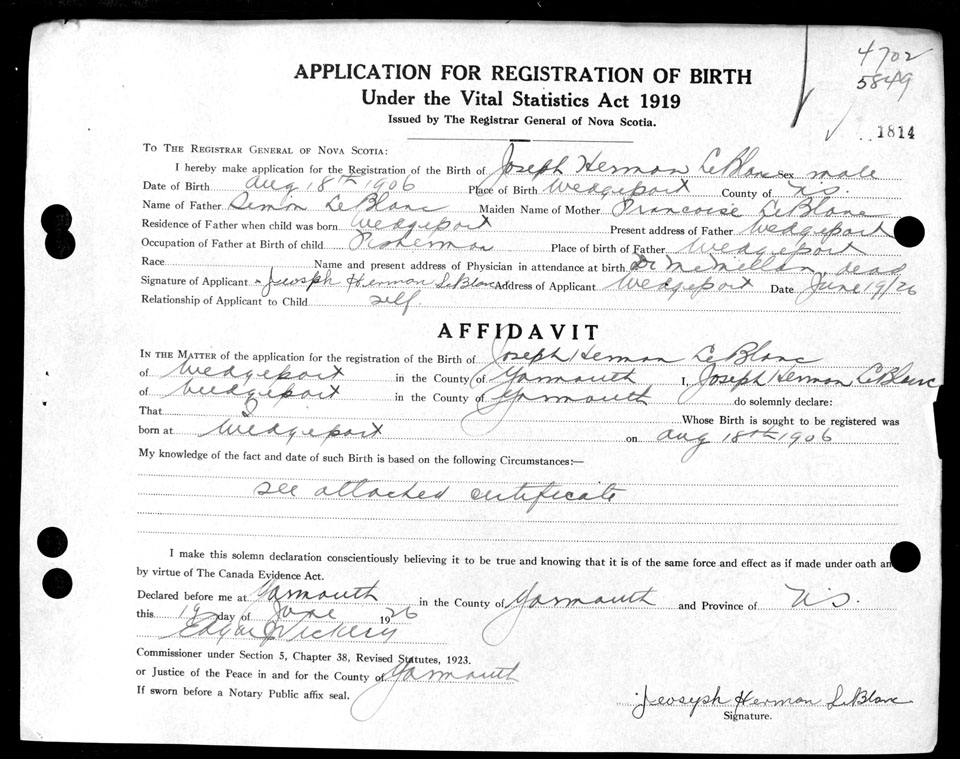 4702
5849
1814
APPLICATION FOR REGISTRATION OF BIRTH
Under the Vital Statistics Act 1919
Issued by The Registrar General of Nova Scotia.
TO THE REGISTRAR GENERAL OF NOVA SCOTIA:
I hereby make application for the Registration of the Birth of Joseph Herman LeBlanc Sex male
Date of Birth Aug 18th 1906 Place of Birth Wedgeport County of N.S.
Name of Father Simon LeBlanc Maiden Name of Mother Francoise LeBlanc
Residence of Father when child was born Wedgeport Present address of Father Wedgeport
Occupation of Father at Birth of child Fisherman Place of birth of Father Wedgeport
Race Name and present address of Physician in attendance at birth Dr McMellan, dead
Signature of Applicant Jeosph Herman LeBlanc Address of Applicant Wedgeport Date June 19/26
Relationship of Applicant to Child self
AFFIDAVIT
IN THE MATTER of the application for the registration of the Birth of Joseph Herman LeBlanc
of Wedgeport in the County of Yarmouth I, Joseph Herman LeBlanc
of Wedgeport in the County of Yarmouth do solemnly declare:
That I Whose Birth is sought to be registered was
born at Wedgeport on Aug 18th 1906
My knowledge of the fact and date of such Birth is based on the following Circumstances:—
see attached certificate
I make this solemn declaration conscientiously believing it to be true and knowing that it is of the same force and effect as if made under oath an
by virtue of The Canada Evidence Act.
Declared before me at Yarmouth in the County of Yarmouth and Province of N.S.
this 19 day of June 1926
Edgar J Vickery
Commissioner under Section 5, Chapter 38, Revised Statutes, 1923.
or Justice of the Peace in and for the County of Yarmouth
If sworn before a Notary Public affix seal.
Jeosyph Herman LeBlanc
Signature.